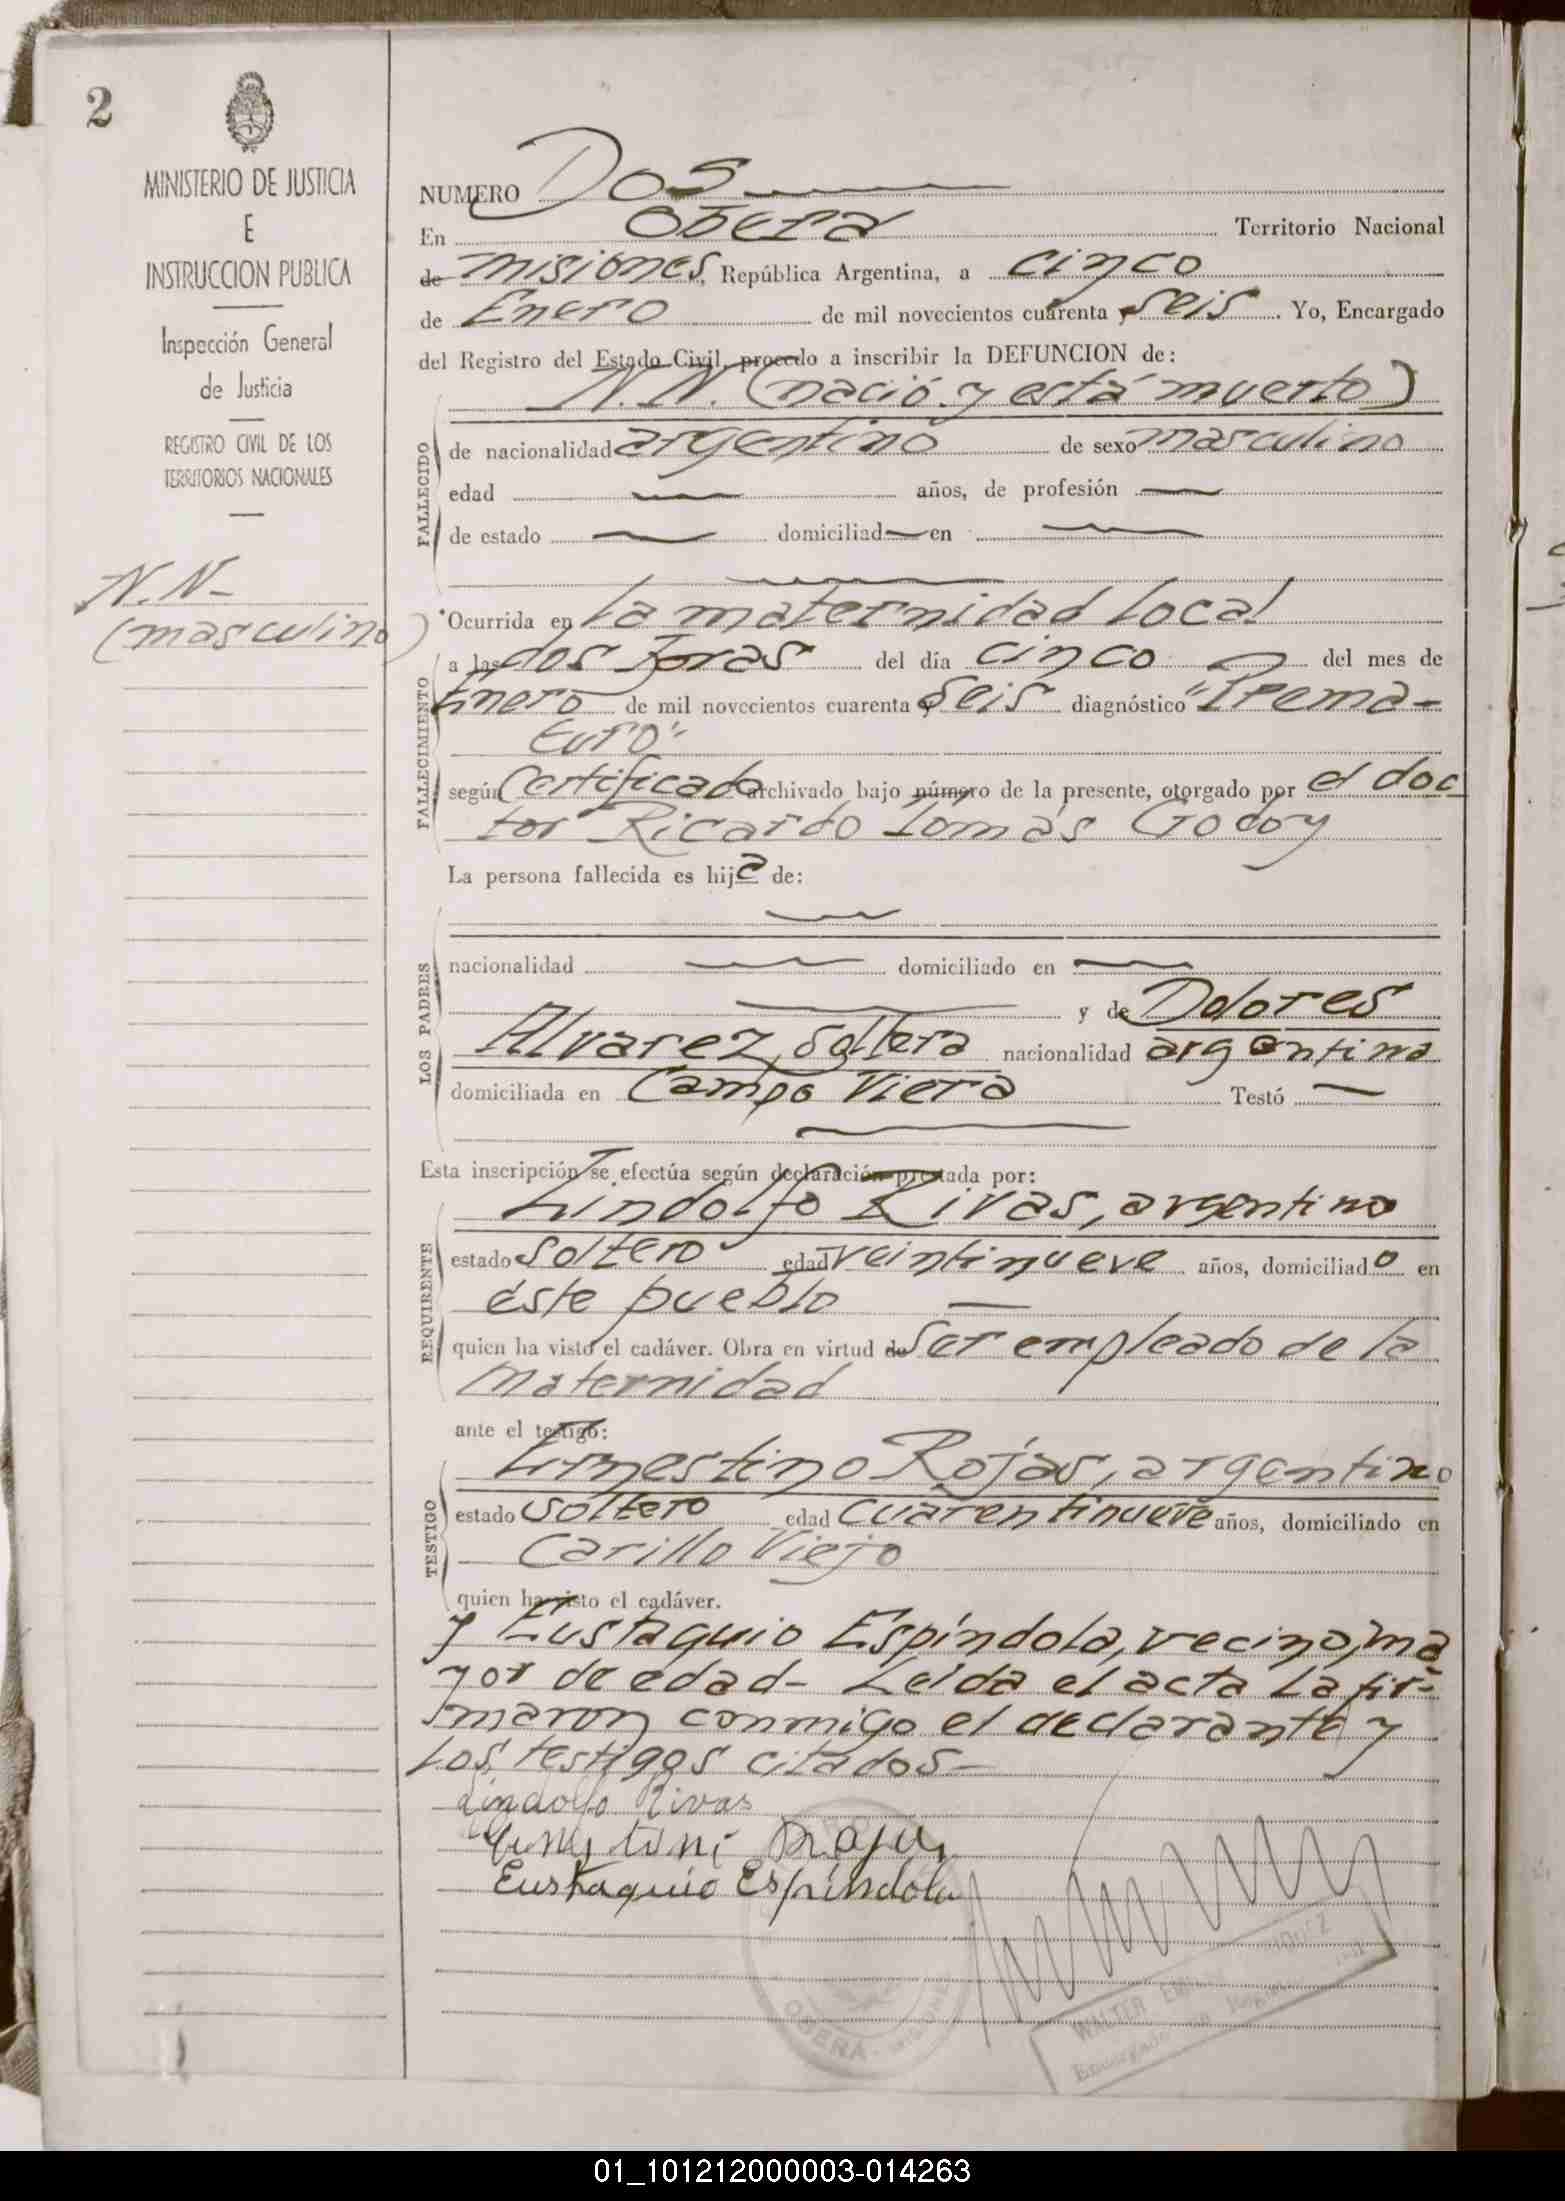 2
MINISTERIO DE JUSTICIA
E
INSTRUCCION PUBLICA
Inspección General
de Justicia
REGISTRO CIVIL DE LOS
TERRITORIOS NACIONALES
N.N-
(masculino)
NUMERO Dos
En Oberá Territorio Nacional
de Misiones, República Argentina, a cinco
de Enero de mil novecientos cuarenta y seis. Yo, Encargado
del Registro del Estado Civil, procedo a inscribir la DEFUNCION de:
N.N. (nació y está muerto)
FALLECIDO
de nacionalidad argentino de sexo masculino
edad años, de profesión
de estado domiciliad en
Ocurrida en la maternidad local
FALLECIMIENTO
a las dos horas del día cinco del mes de
Enero de mil novecientos cuarenta y seis diagnóstico "Prema-
turo"
según certificado archivado bajo número de la presente, otorgado por el doc
tor Ricardo Tomás Godoy
La persona fallecida es hija de:
LOS PADRES
nacionalidad domiciliado en
y de Dolores
Alvarez, soltera nacionalidad argentina
domiciliada en Campo Viera Testó
Esta inscripción se efectúa según declaración prestada por:
Lindolfo Rivas, argentino
REQUIRENTE
estado soltero edad veintinueve años, domiciliado en
éste pueblo
quien ha visto el cadáver. Obra en virtud de ser empleado de la
Maternidad
ante el testigo:
Ernestino Rojas, argentino
TESTIGO
estado soltero edad cuarentinueve años, domiciliado en
Carillo Viejo
quien ha visto el cadáver.
y Eustaquio Espíndola, vecino, ma
yor de edad- Leída el acta la fir-
maron conmigo el declarante y
los testigos citados-
Lindolfo Rivas
Eustaquio Espíndola
OBERA
WALTER
01_101212000003-014263